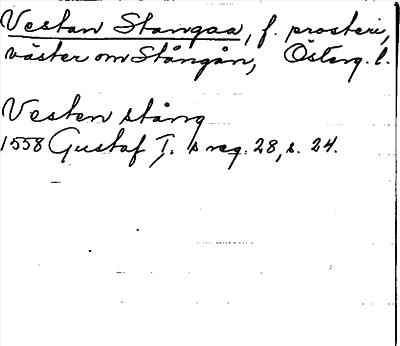 Vestan Stangaa, f. prosteri,
väster om Stångån, Österg. l.
Vesten stång
1558 Gustaf I. s reg. 28, s. 24.